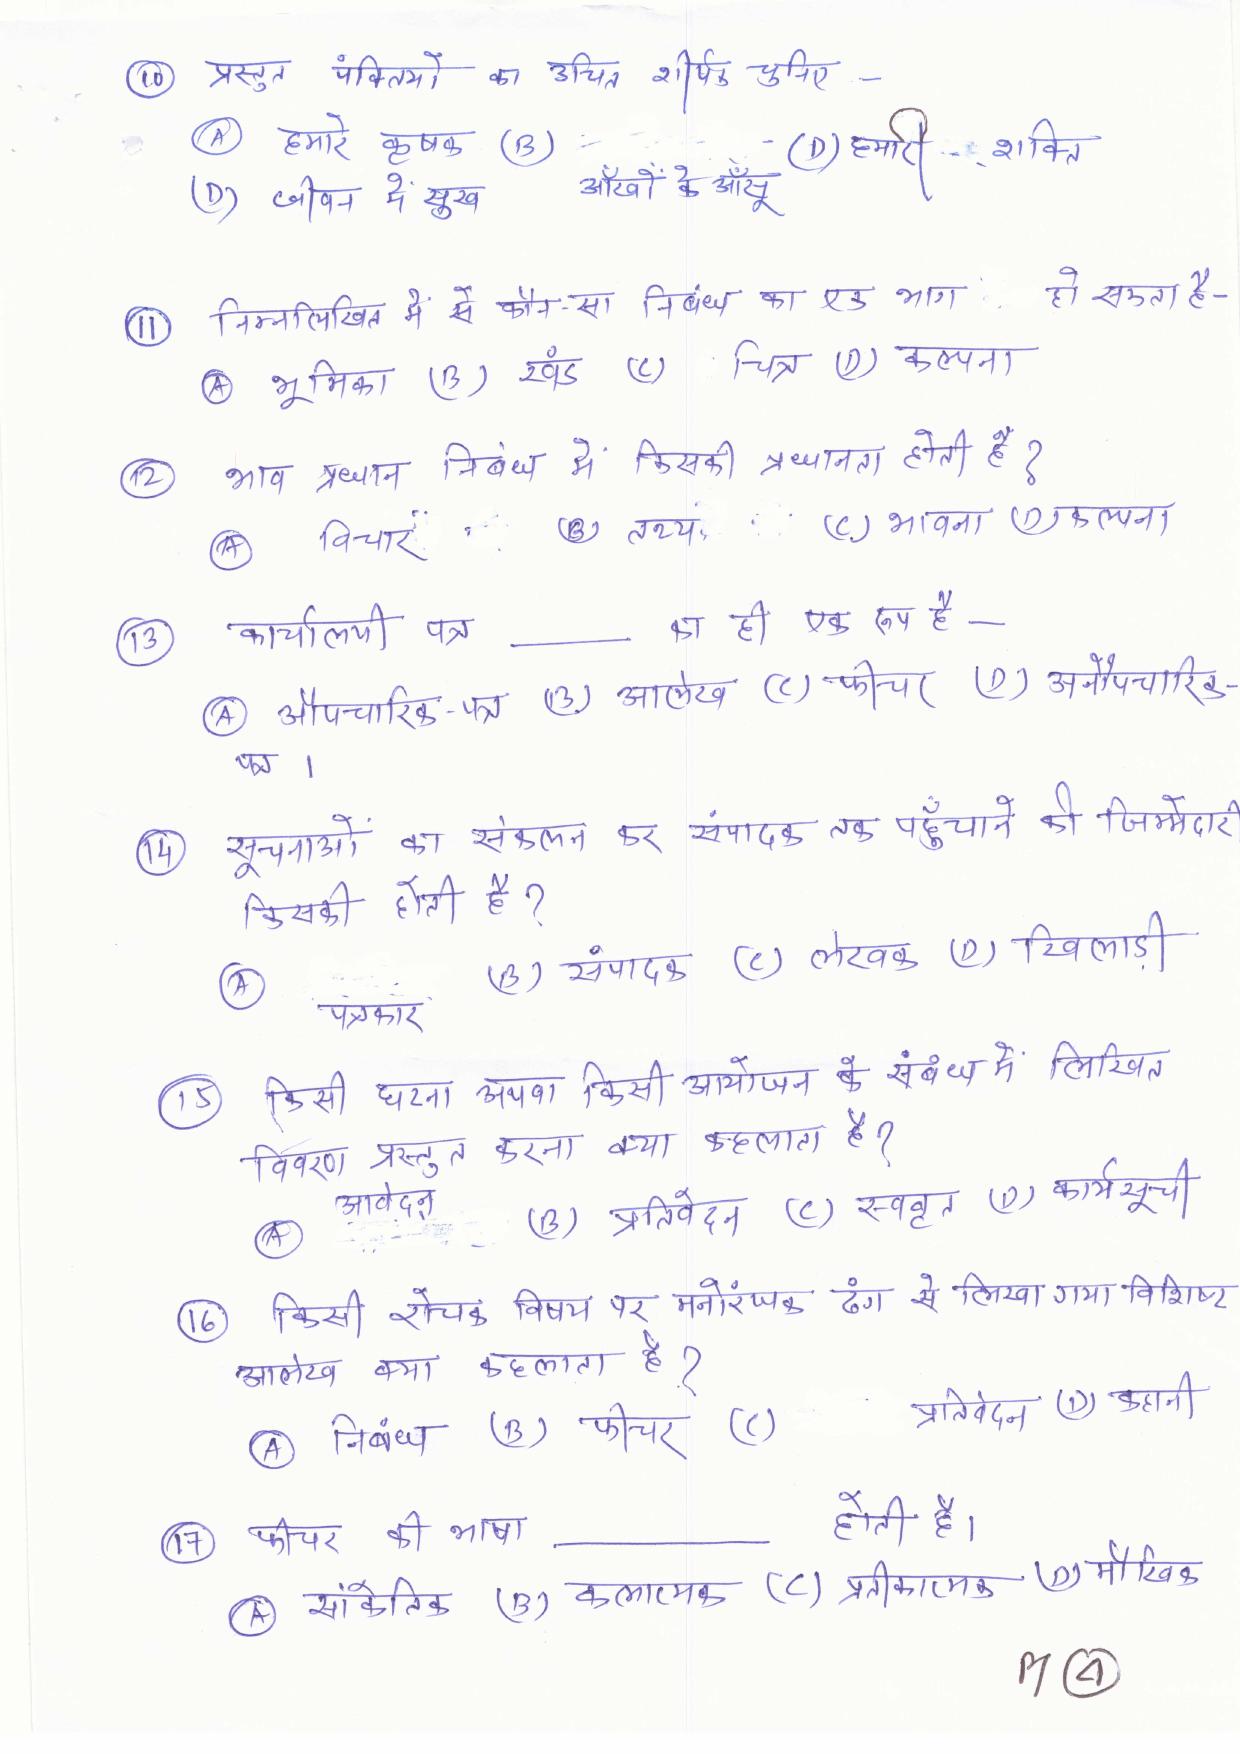 (10) प्रस्तुत पंक्तियों का उचित शीर्षक चुनिए -
(A) हमारे कृषक (B) आँखों के आँसू (D) हमारी शक्ति
(D) जीवन में सुख
(11) निम्नलिखित में से कौन-सा निबंध का एक भाग हो सकता है-
(A) भूमिका (B) खंड (C) चित्र (D) कल्पना
(12) भाव प्रधान निबंध में किसकी प्रधानता होती है?
(A) विचार (B) तथ्य (C) भावना (D) कल्पना
(13) कार्यालयी पत्र ______ का ही एक रूप है —
(A) औपचारिक-पत्र (B) आलेख (C) फीचर (D) अनौपचारिक-
पत्र ।
(14) सूचनाओं का संकलन कर संपादक तक पहुँचाने की जिम्मेदारी
किसकी होती है?
(A) पत्रकार (B) संपादक (C) लेखक (D) खिलाड़ी
(15) किसी घटना अथवा किसी आयोजन के संबंध में लिखित
विवरण प्रस्तुत करना क्या कहलाता है?
(A) आवेदन (B) प्रतिवेदन (C) स्ववृत (D) कार्यसूची
(16) किसी रोचक विषय पर मनोरंजक ढंग से लिखा गया विशिष्ट
आलेख क्या कहलाता है?
(A) निबंध (B) फीचर (C) प्रतिवेदन (D) कहानी
(17) फीचर की भाषा ______ होती है।
(A) सांकेतिक (B) कलात्मक (C) प्रतीकात्मक (D) मौखिक